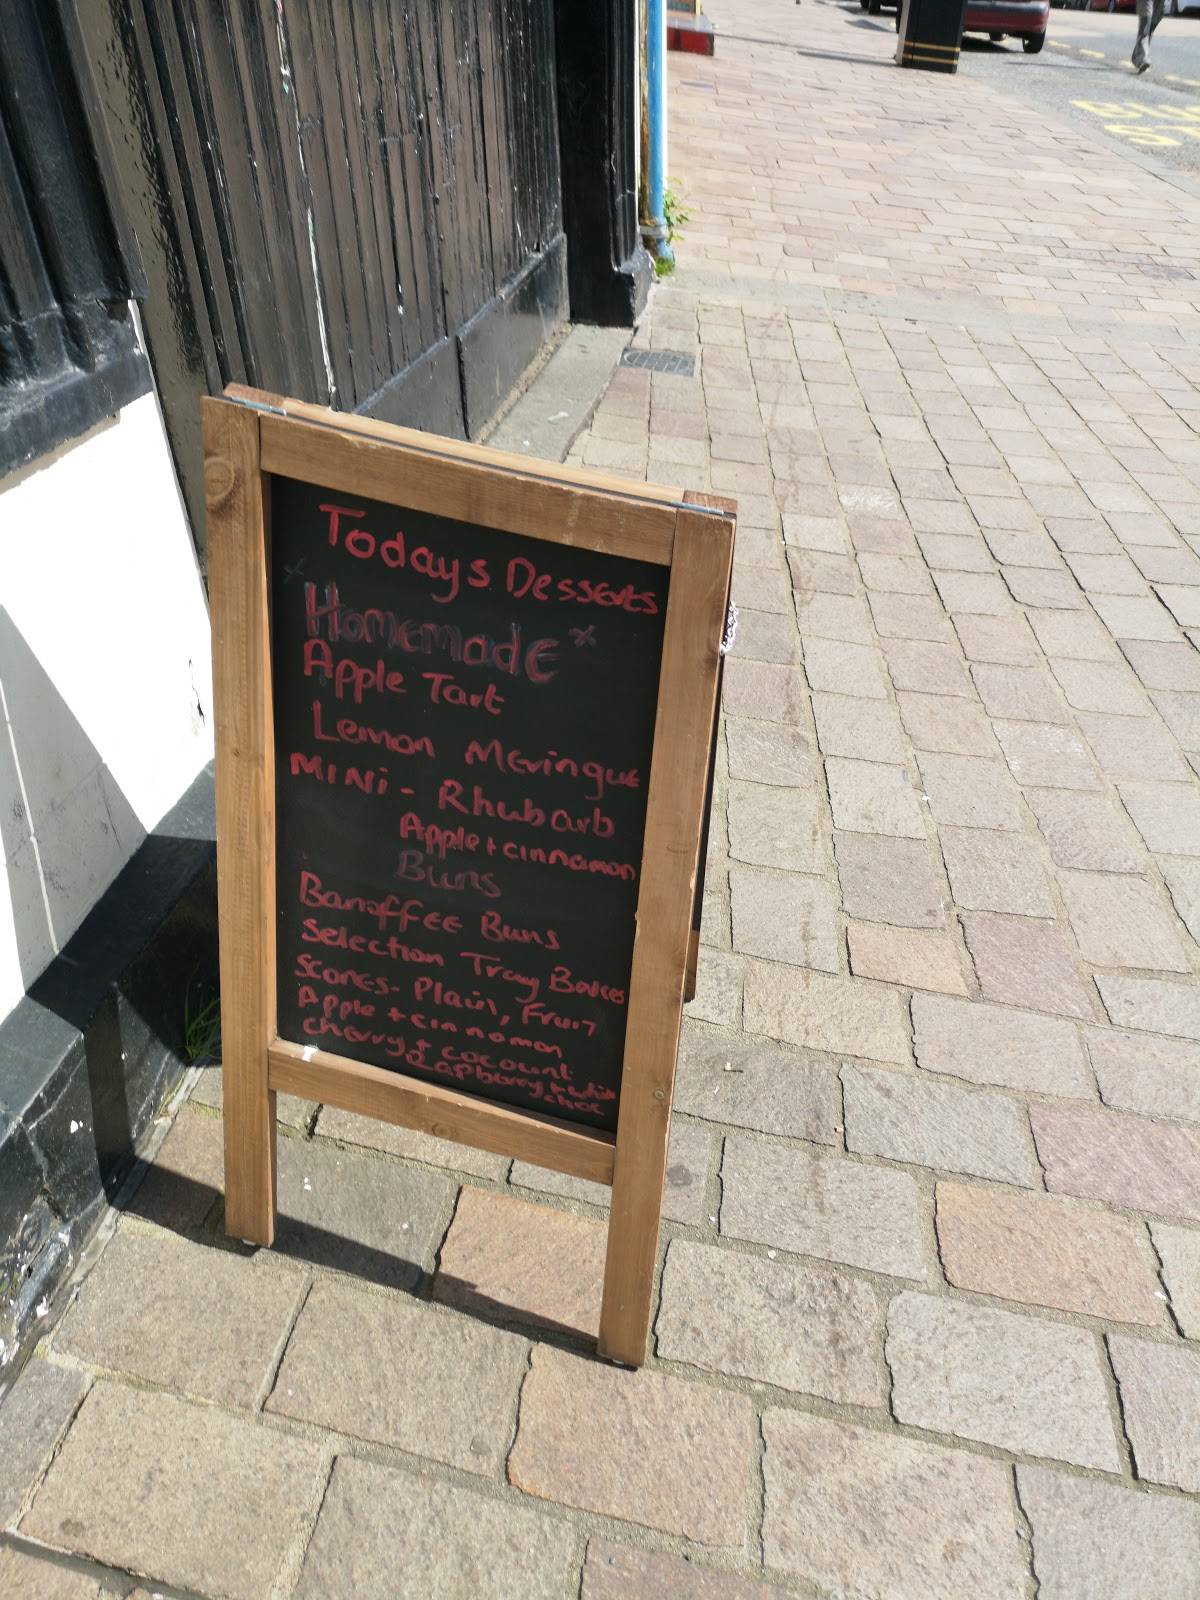 Todays Desserts
x Homemade x
Apple Tart
Lemon Meringue
MINi - Rhubarb
Apple + cinnamon
Buns
Banoffee Buns
Selection Tray Bakes
Scones - Plain, Fruit
Apple + cinnomon
cherry + cocount
Raspberry + white
choc